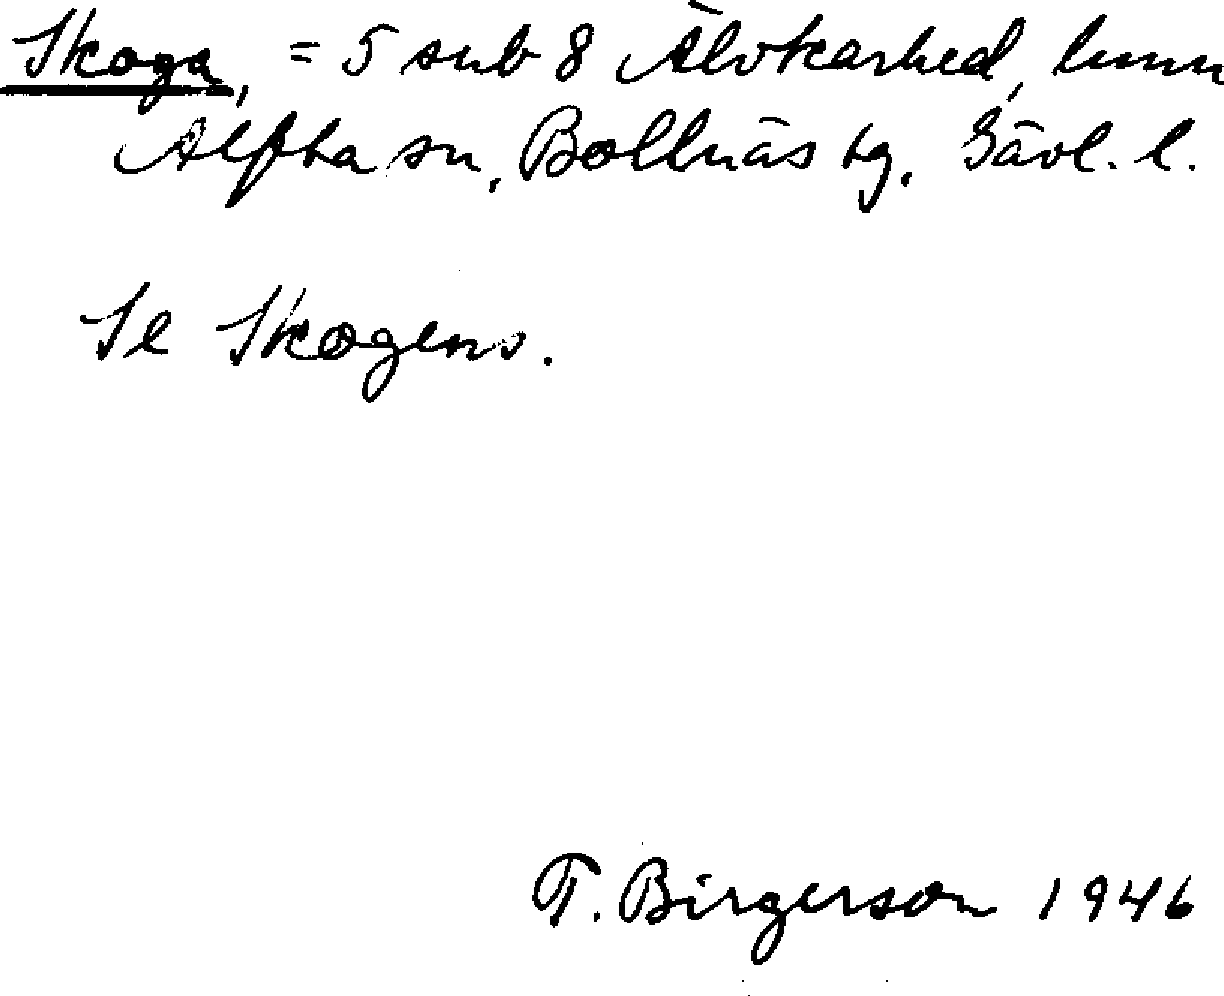 Skoga, = 5 sub 8 Älvkarhed, hmn
Alfta sn, Bollnäs tg, Gävl. l.
Se Skogens.
T. Birgerson 1946